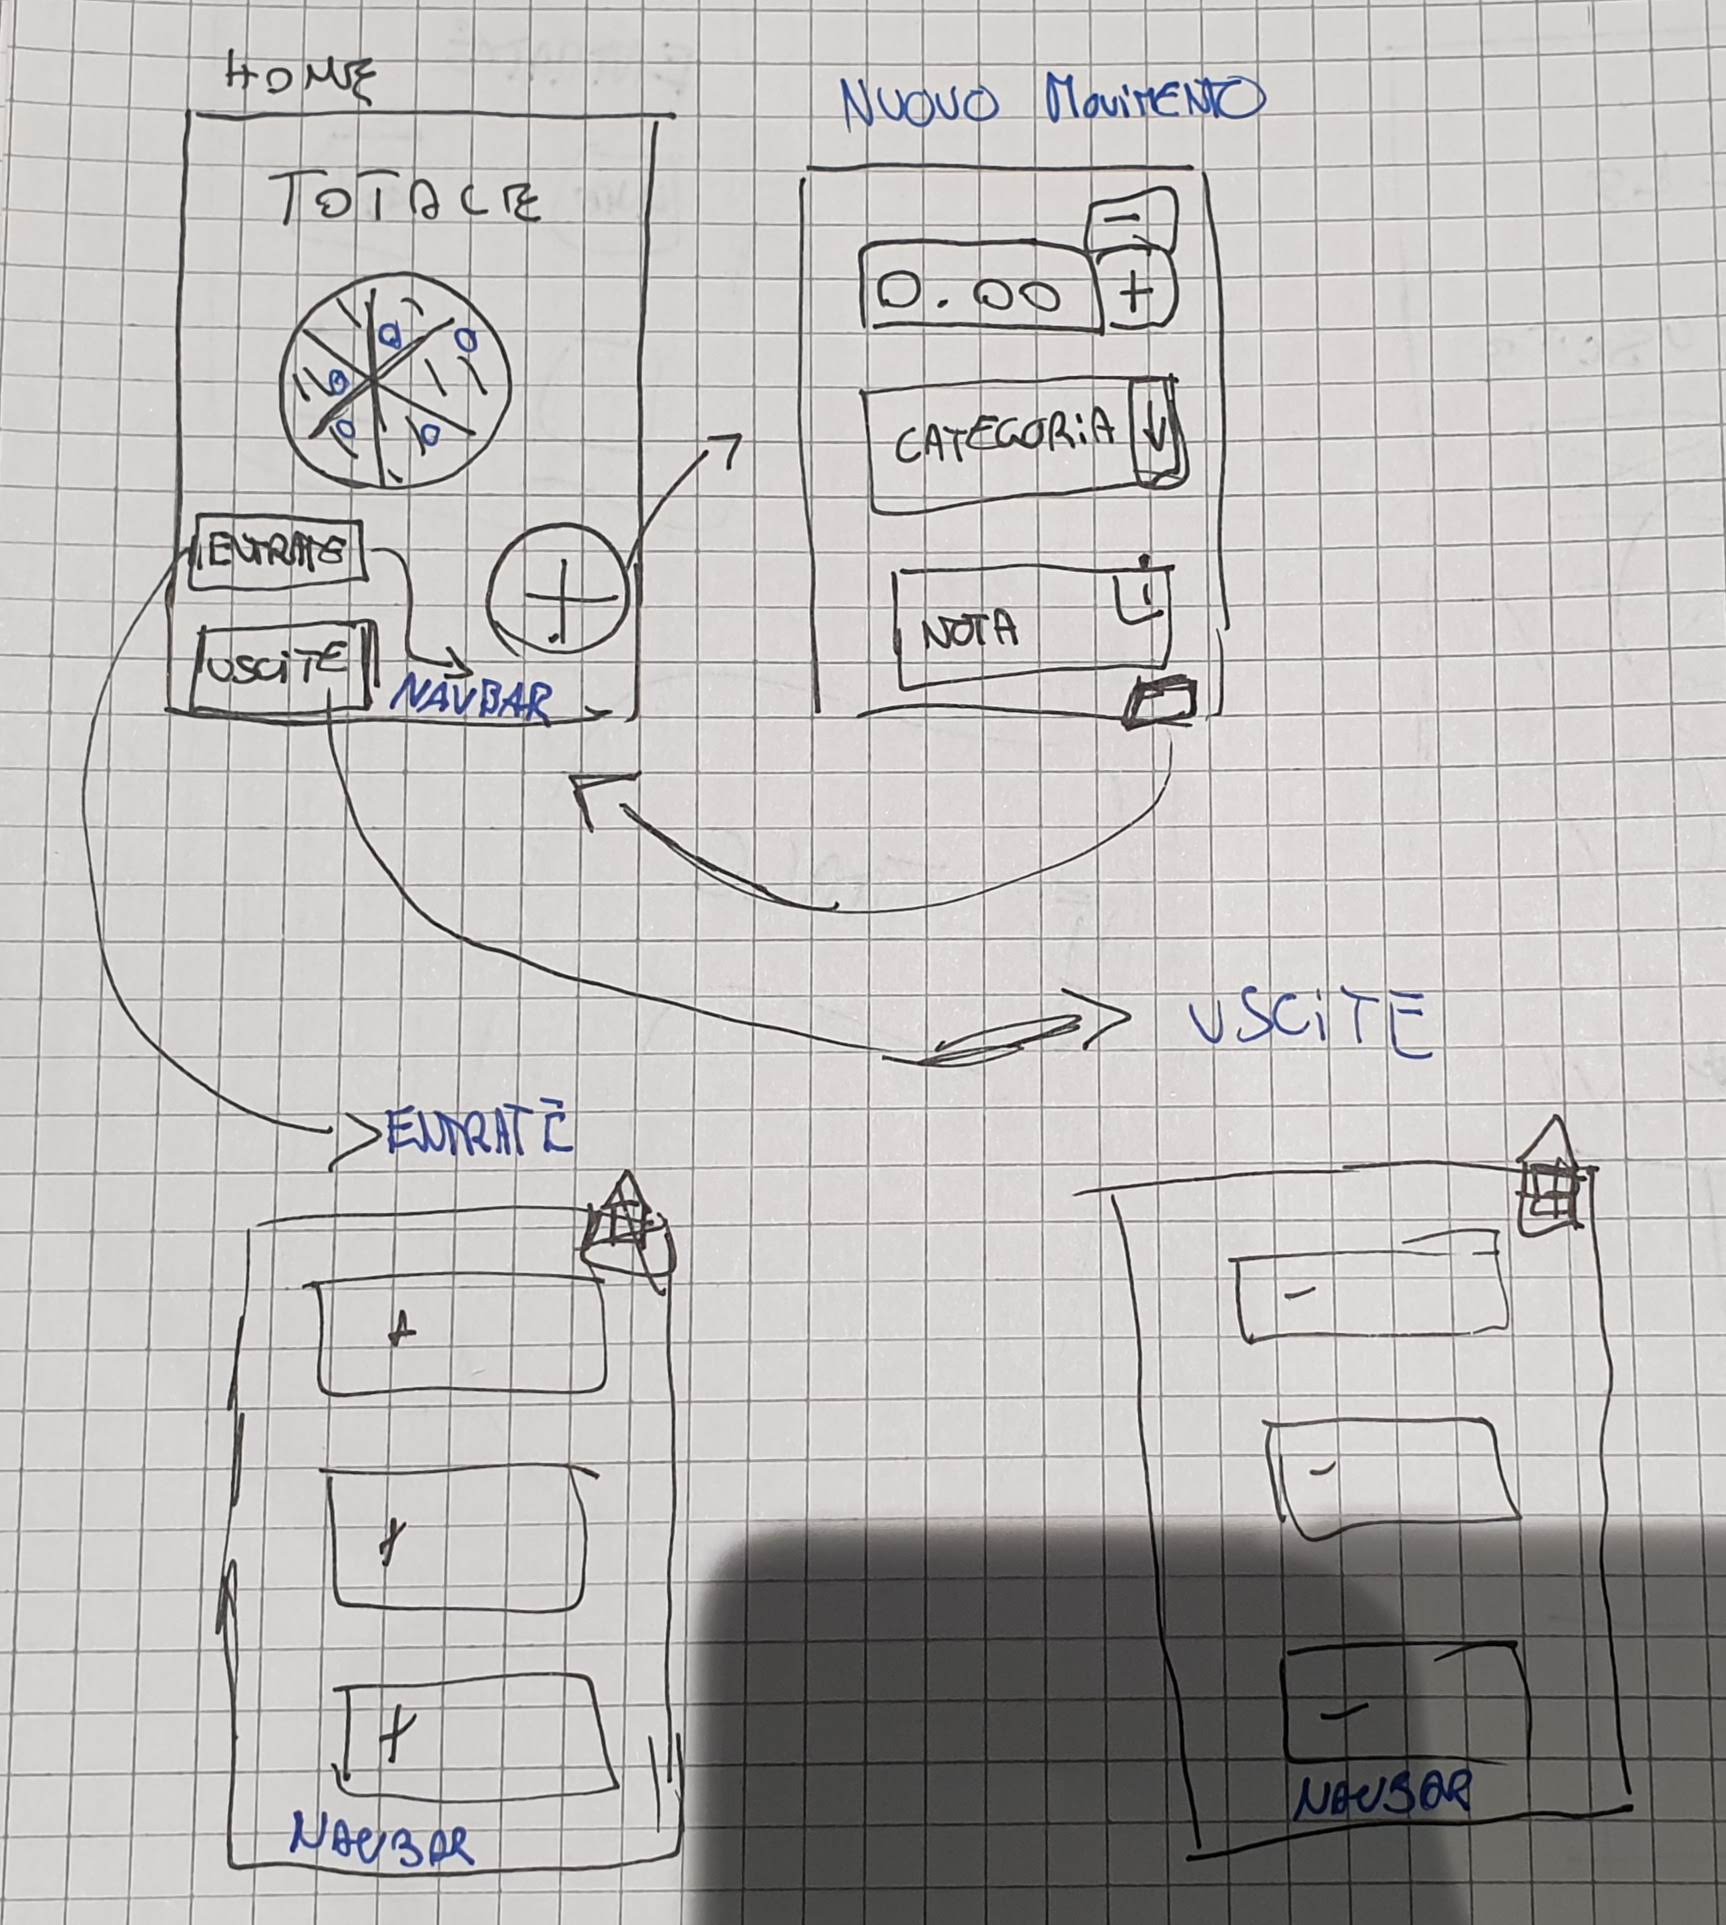 HOME
TOTALE
ENTRATE
USCITE
NAVBAR
NUOVO MOVIMENTO
-
0.00 +
CATEGORIA
NOTA
USCITE
ENTRATE
+
+
+
NAVBAR
-
-
-
NAVBAR